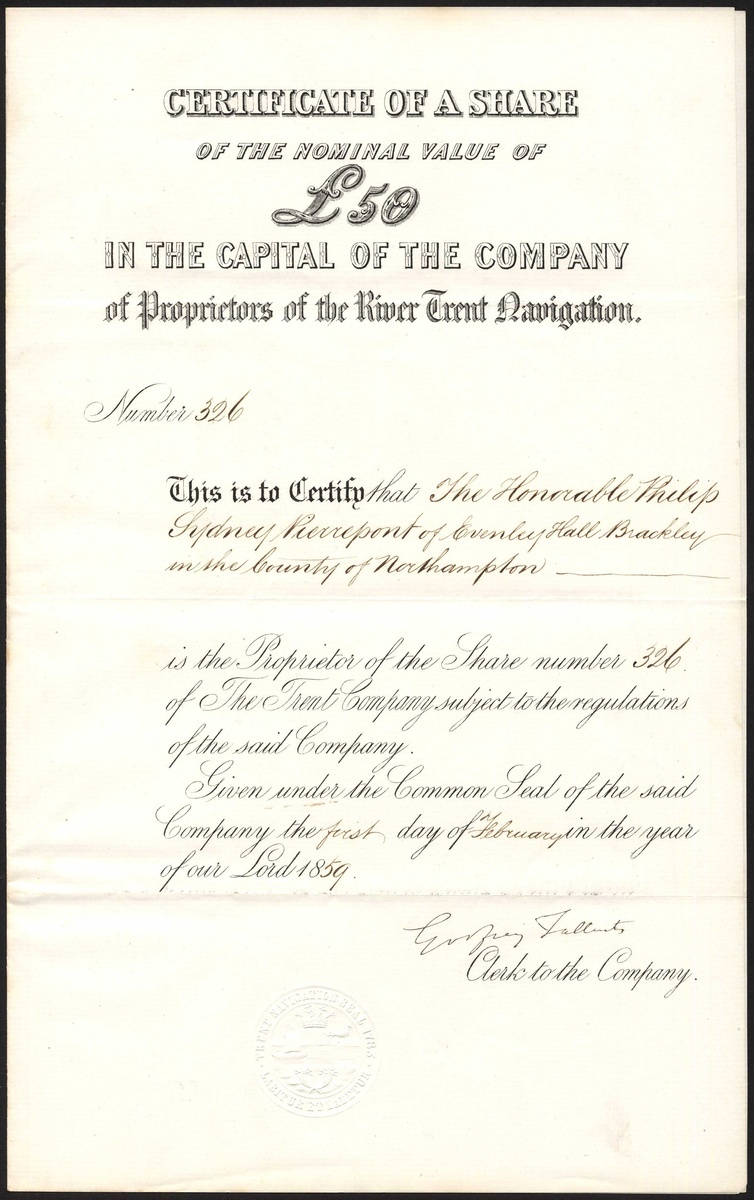 CERTIFICATE OF A SHARE
OF THE NOMINAL VALUE OF
£50
IN THE CAPITAL OF THE COMPANY
of Proprietors of the River Trent Navigation.
Number 326
This is to Certify that The Honorable Philip
Sydney Pierrepont of Evenley Hall Brackley
in the County of Northampton
is the Proprietor of the Share number 326.
of The Trent Company subject to the regulations
of the said Company.
Given under the Common Seal of the said
Company the first day of February in the year
of our Lord 1859.
Godfrey Tallents
Clerk to the Company.
TRENT NAVIGATION SEAL 1783
LABITUR ET LABETUR